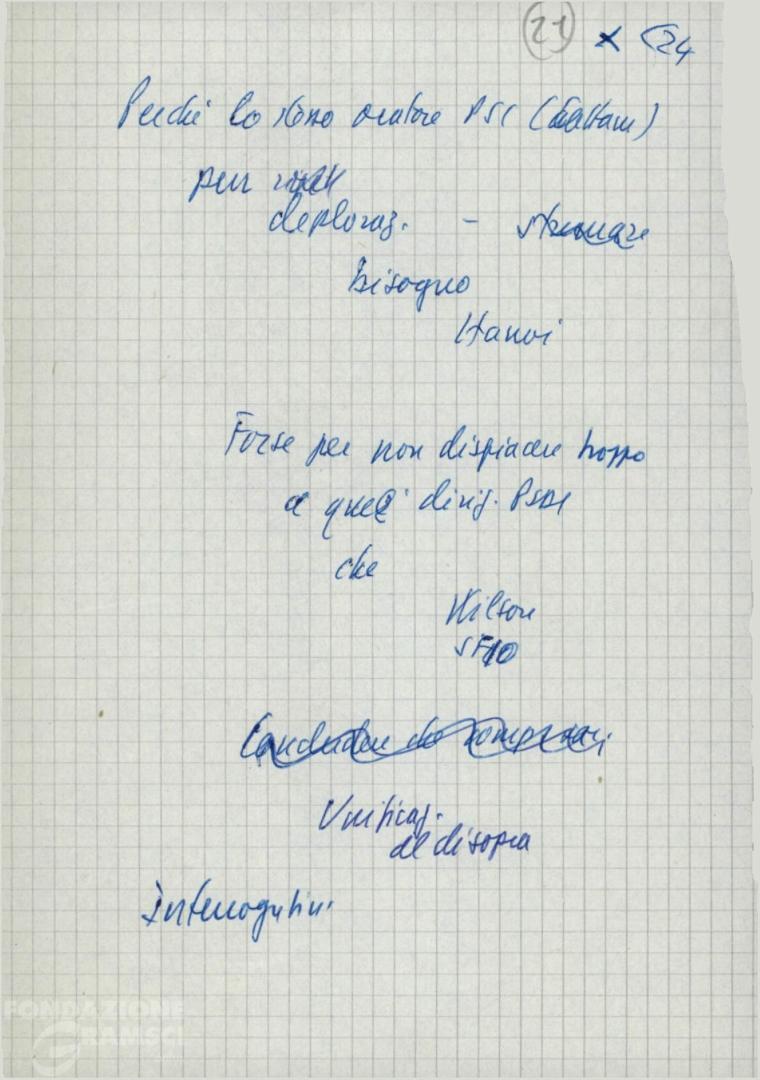 21 x 24
Perché lo stesso oratore PSI
pur
deploraz. -
Bisogno
Hanoi
Forse per non dispiacere troppo
a quei dirig. PSDI
che
Wilson
SFIO
Concludere
Unificaz.
al disopra
Interrogativi
FONDAZIONE
GRAMSCI